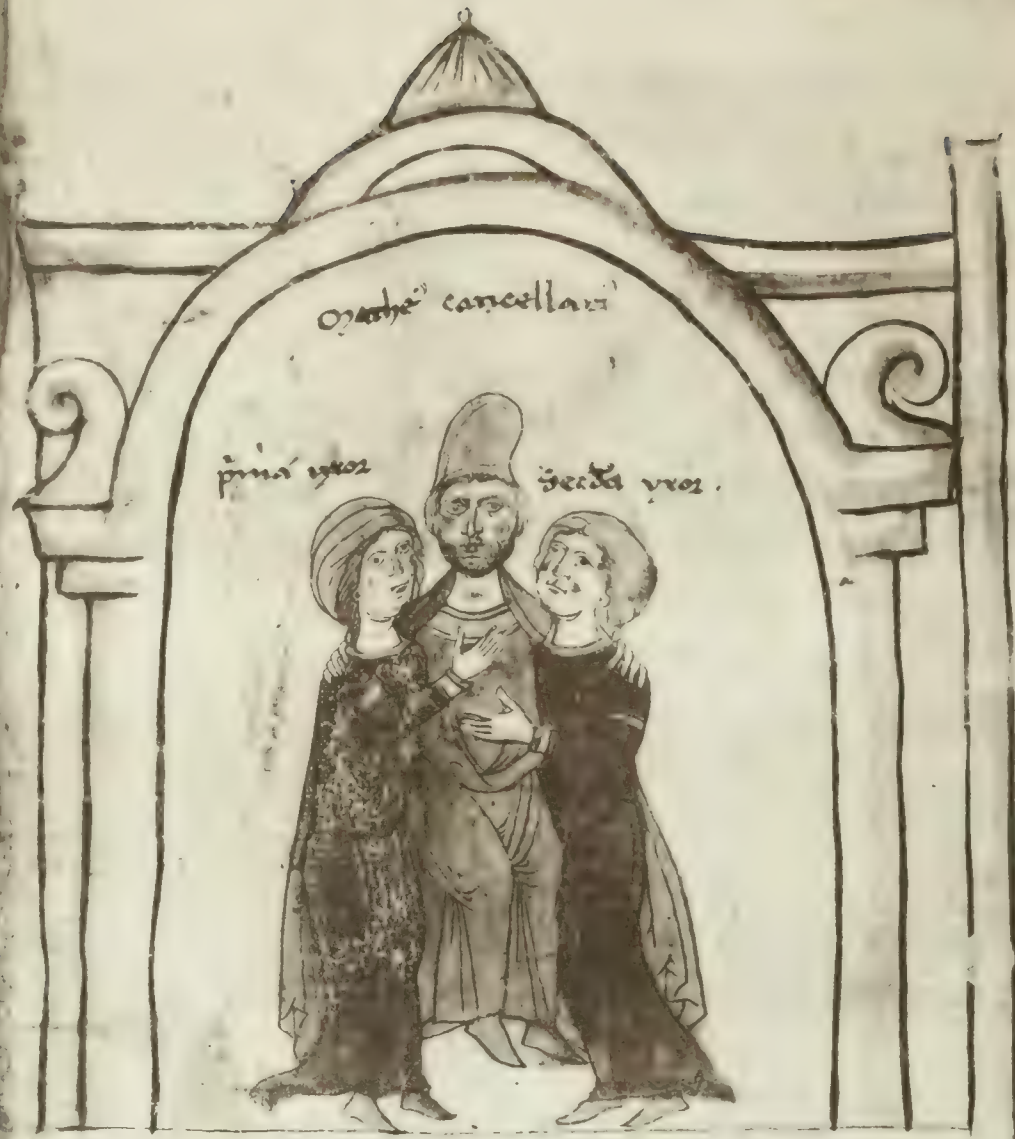 Mathe⁹ cancellari⁹
p̄ma uxor
Secūda uxor.